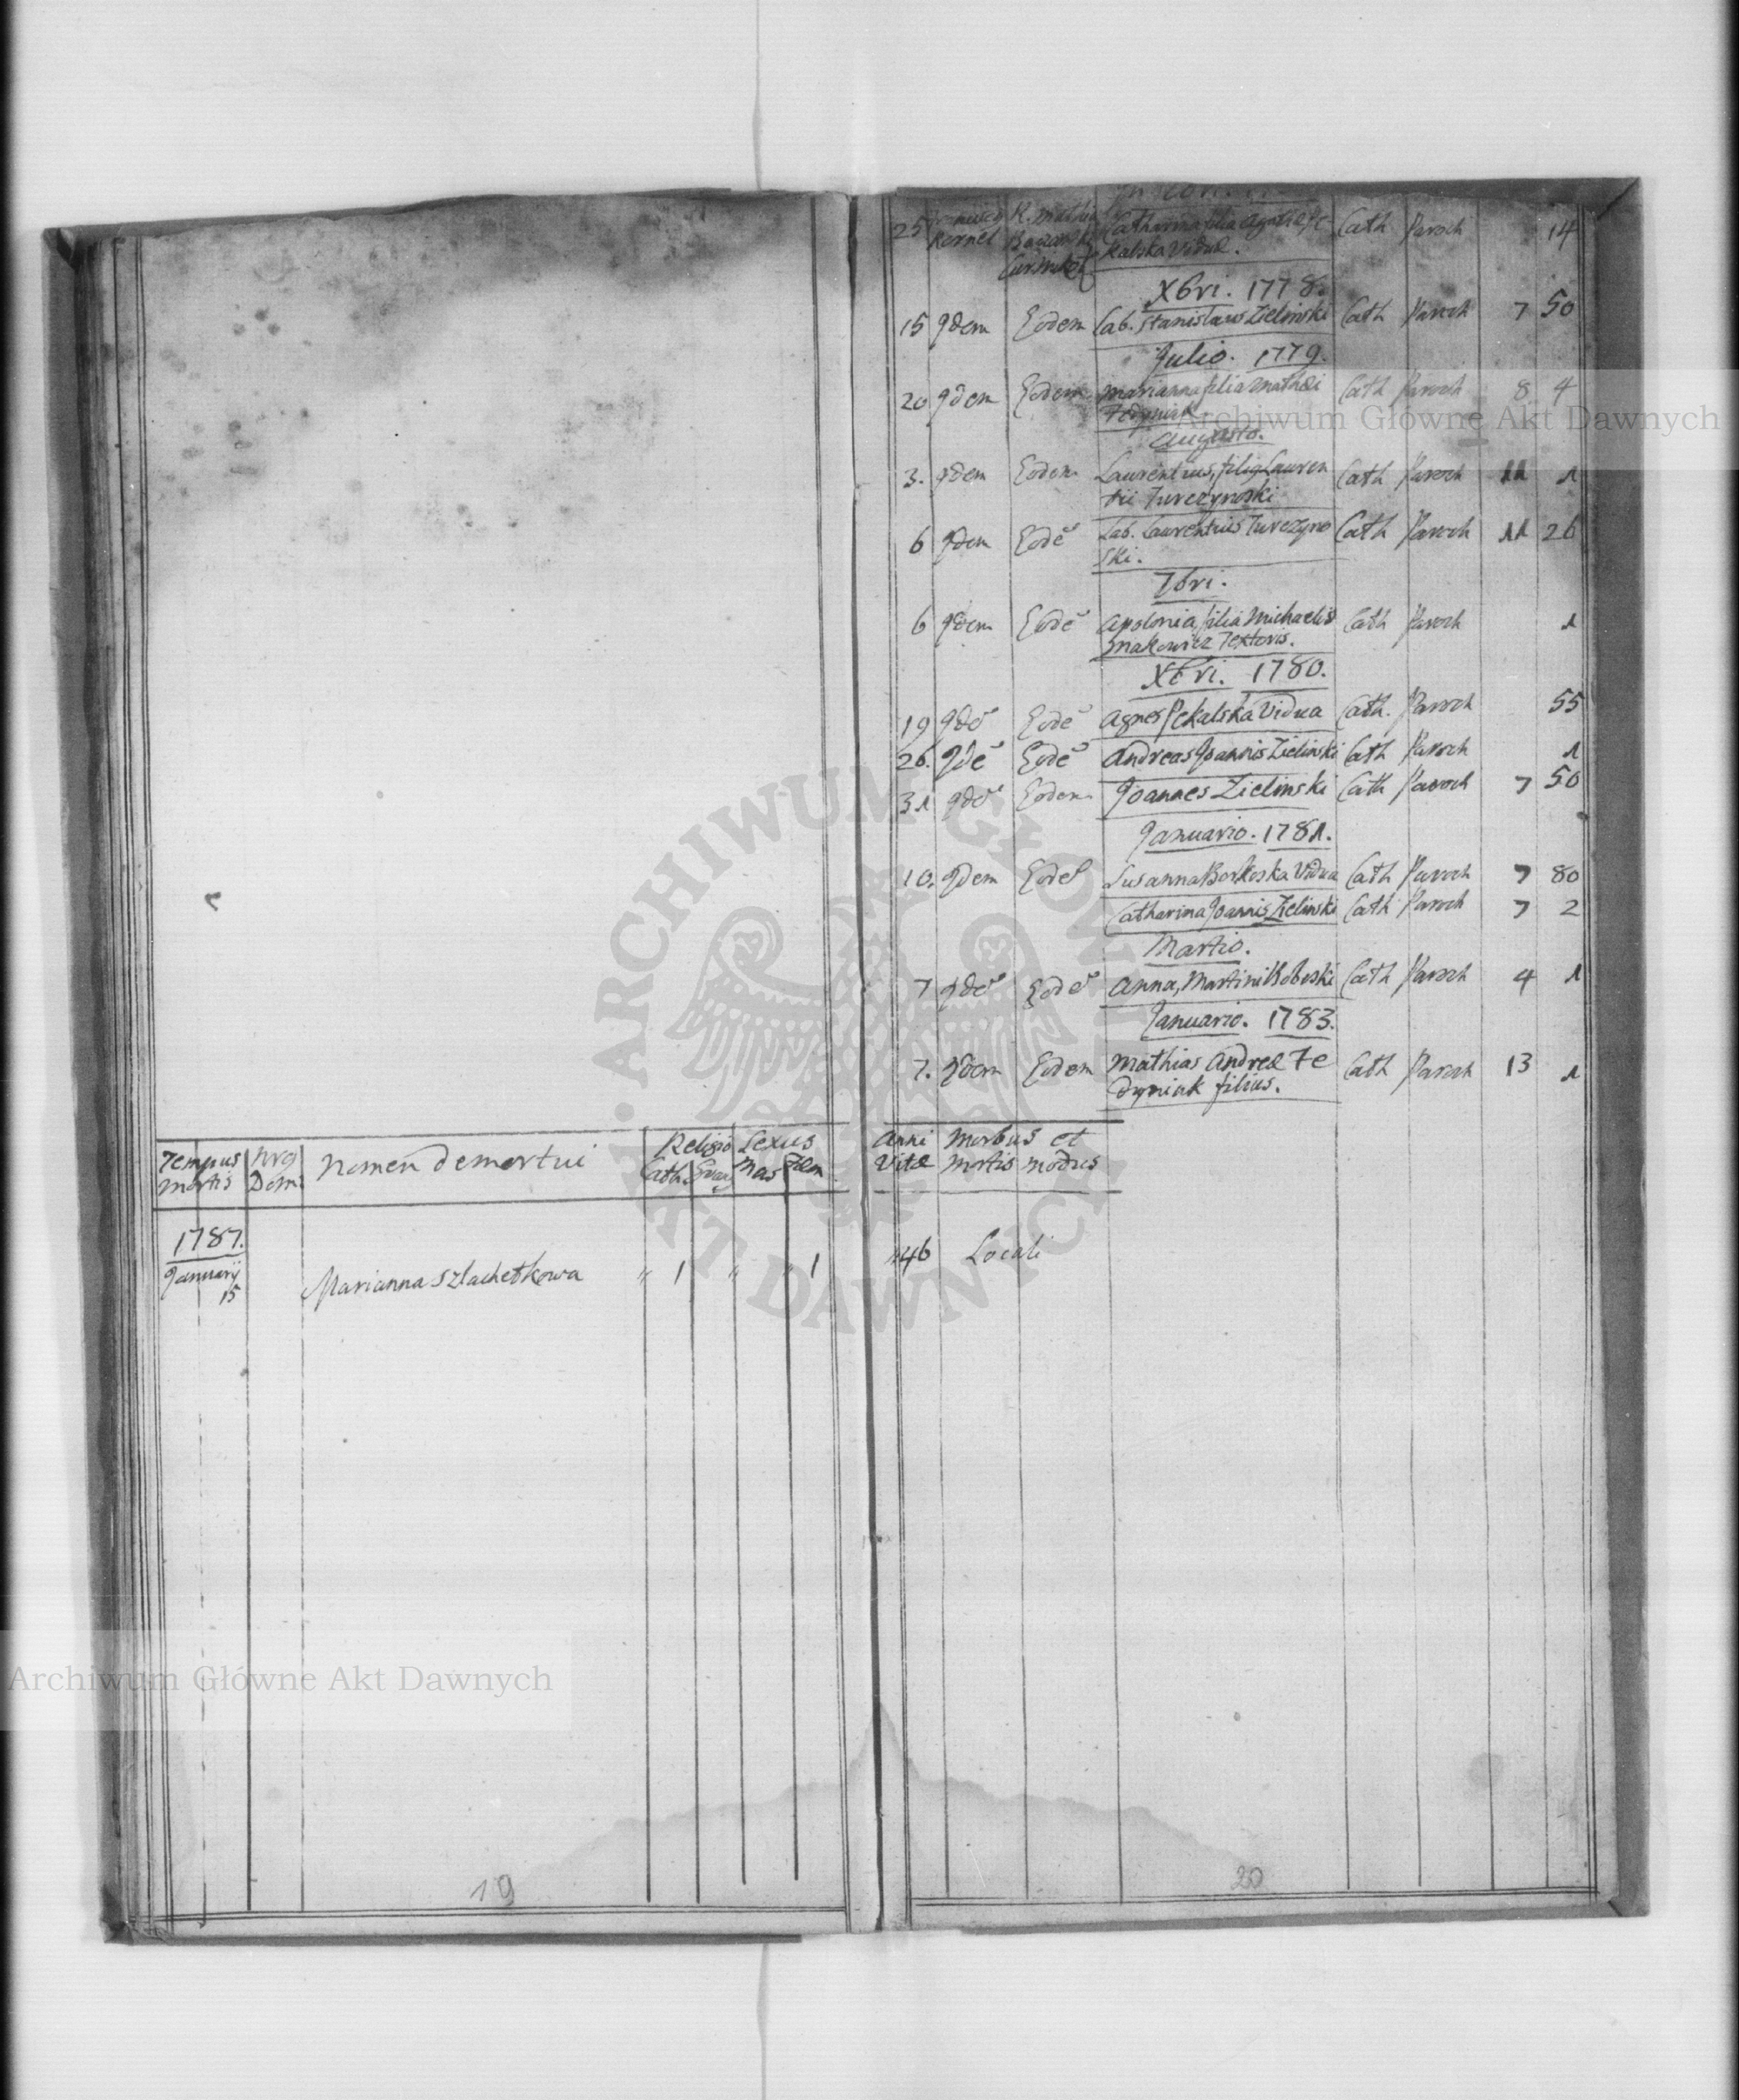 25 Kernel Catharina filia Agnetis Pe Cath Paroch 14
kalska Vidua.
Xbri. 1778.
15 Idem Eodem Lab. Stanislaus Zielinski Cath Paroch 7 50
Julio. 1779.
20 Idem Eodem Marianna filia Mathæi Cath Paroch 8 4
Fedyniak
Augusto.
3. Idem Eodem Laurentius, filig Lauren Cath Paroch 11 1
tii Turczynoski
6 Idem Eodē Lab. Laurentius Turczyno Cath Paroch 11 26
ski.
7bri.
6 Idem Eodē Apolonia, filia Michaelis Cath Paroch 1
Makowicz Textoris.
Xbri. 1780.
19 Idē Eodē Agnes Pekalska Vidua Cath. Paroch 55
26. Idē Eodē Andreas Joannis Zielinski Cath Paroch 1
31 Idē Eodem Joannes Zielinski Cath Paroch 7 50
Januario. 1781.
10. Idem Eodē Susanna Borkoska Vidua Cath Paroch 7 80
Catharina Joannis Zielinski Cath Paroch 7 2
Martio.
7 Idē Eodē Anna, Martini Koboski Cath Paroch 4 1
Januario. 1783.
7. Idem Eodem Mathias Andreæ Fe Cath Paroch 13 1
dyniak filius.
Tempus Nrg Nomen demortui Religio Sexus Anni Morbus et
Mortis Dom: Cath. Evang Mas Fem Vitæ Mortis modus
1787.
Januarij Marianna Szlachetkowa " 1 " 1 46 Locali
15
19
20
Archiwum Główne Akt Dawnych
Archiwum Główne Akt Dawnych
ARCHIWUM GŁÓWNE AKT DAWNYCH